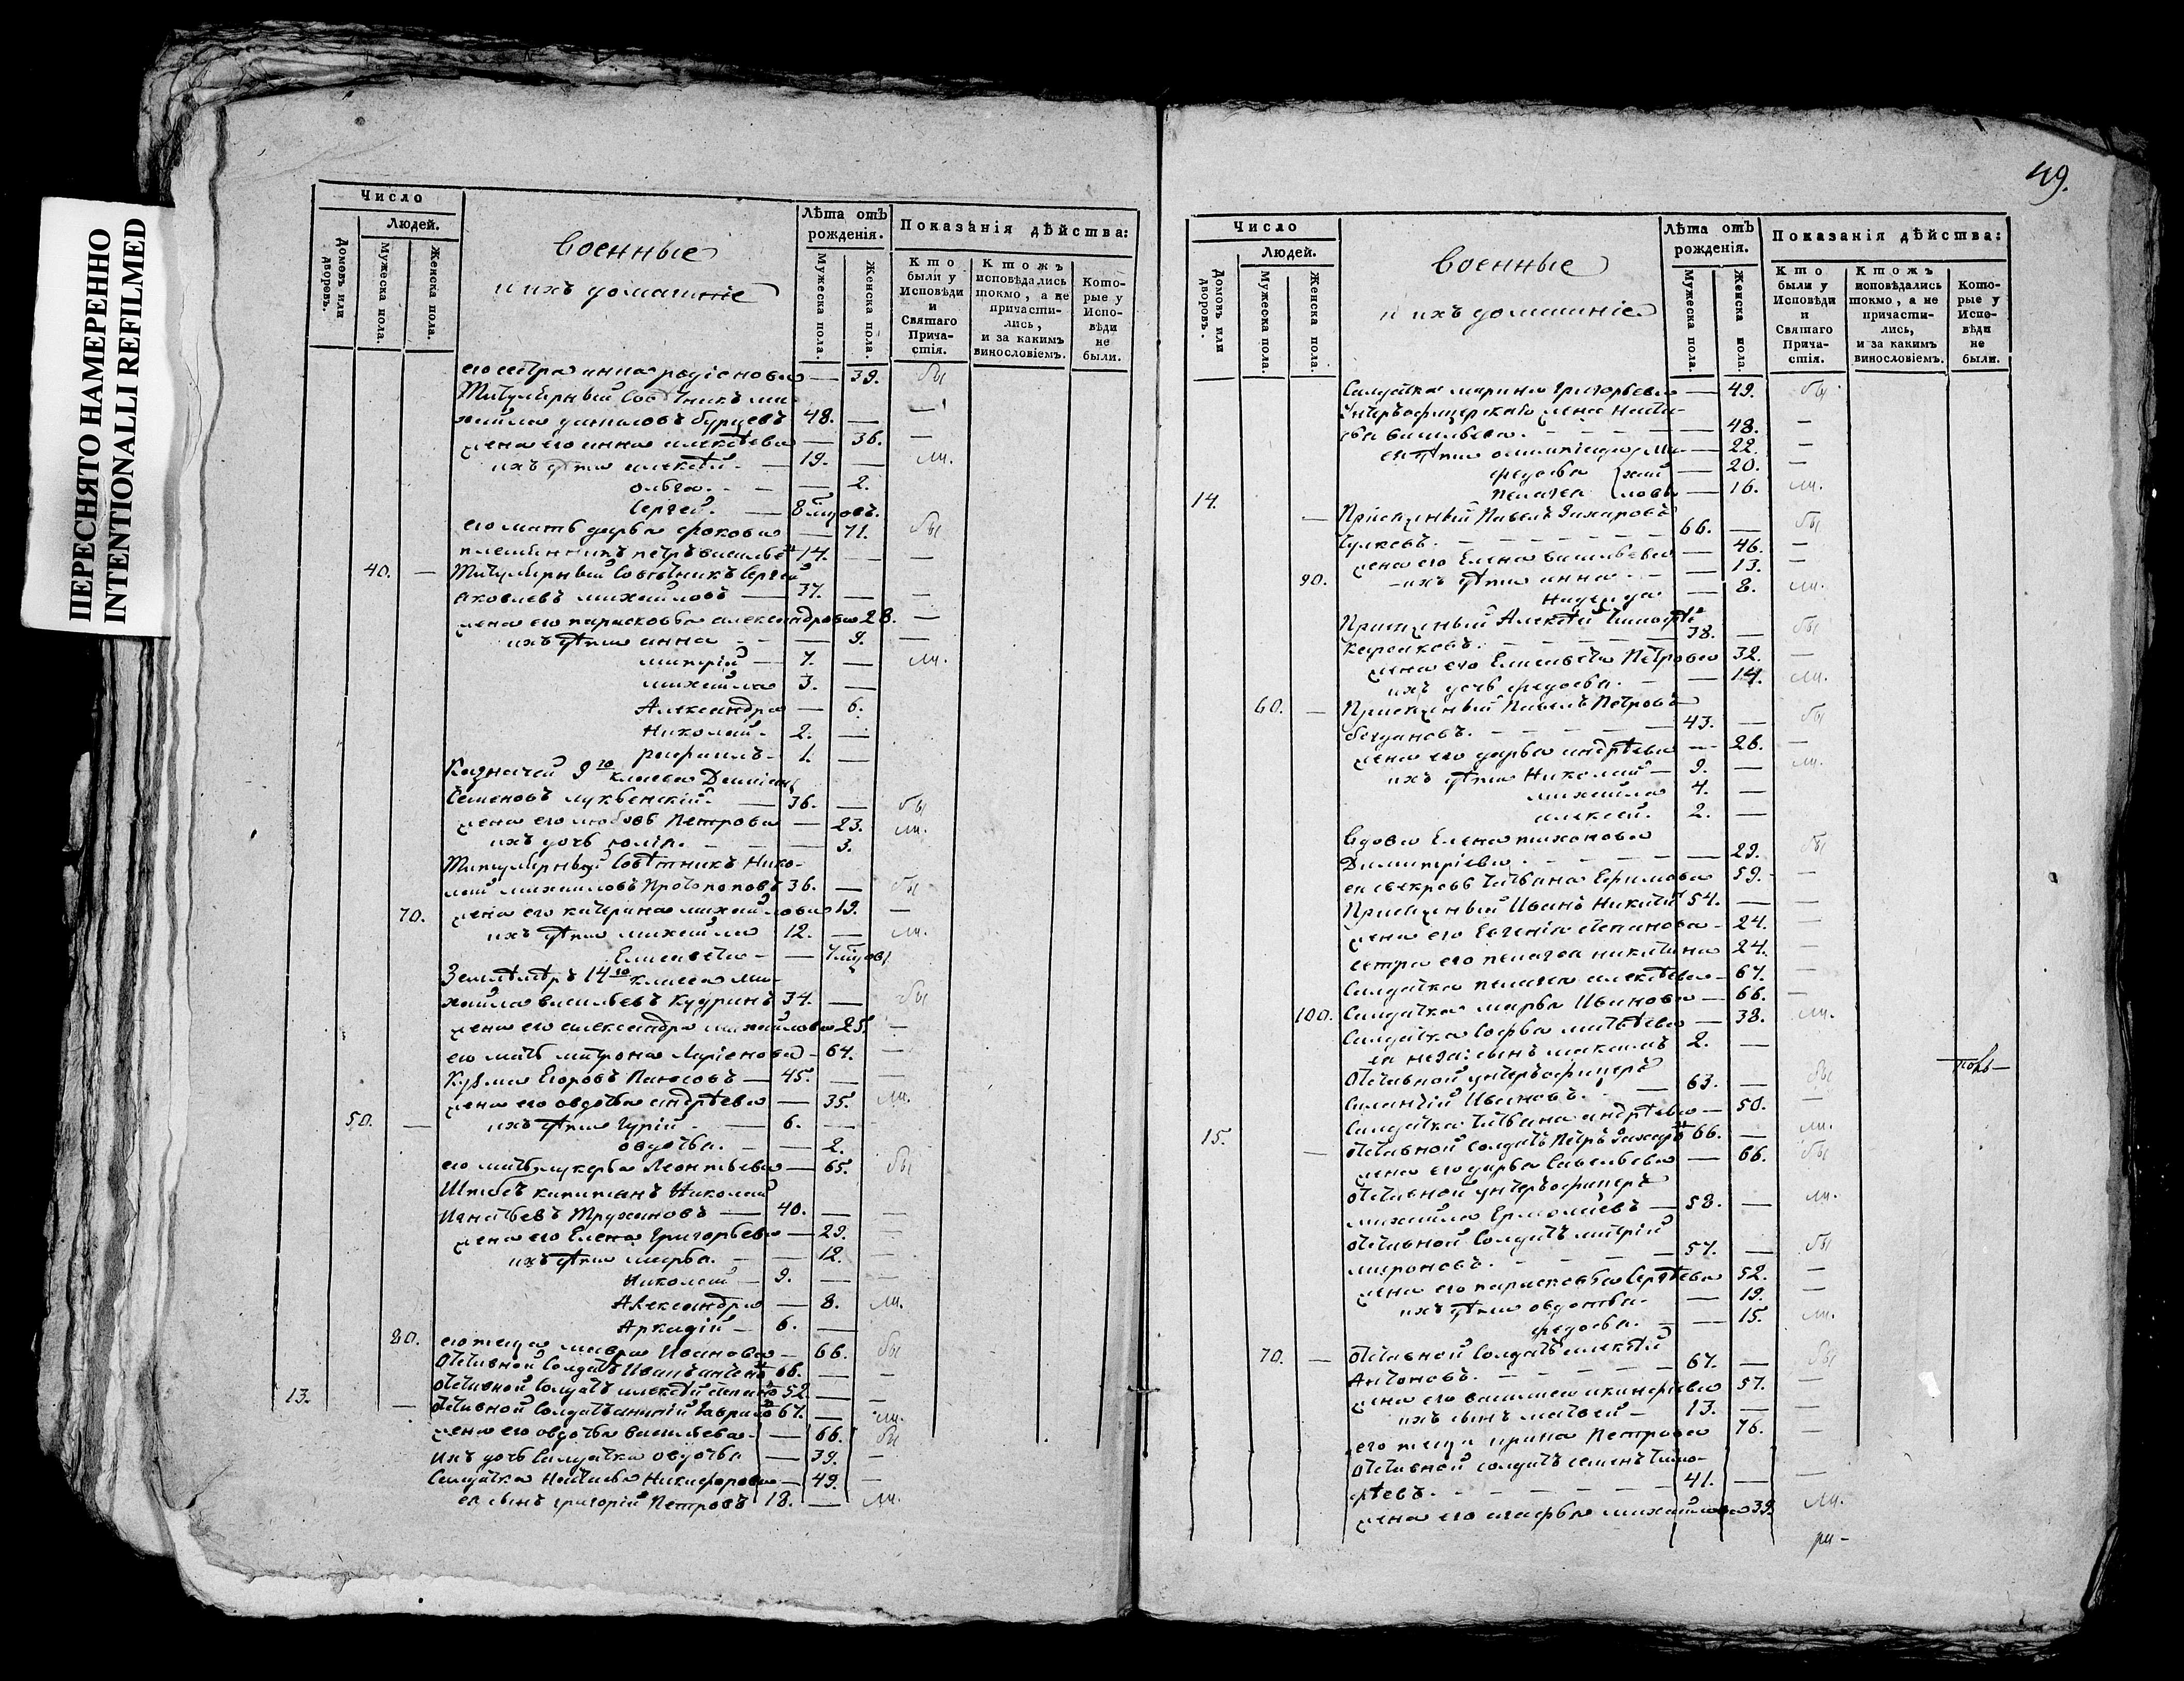 ПЕРЕСНЯТО НАМЕРЕННО
INTENTIONALLI REFILMED
Число
Людей.
Домовъ или дворовъ.
Мужеска пола.
Женска пола.
военные
и ихъ домашніе
Лѣта отъ рожденія.
Мужеска пола.
Женска пола.
Показанія дѣйства:
Кто были у Исповѣди и Святаго Прича-стія.
Ктожъ исповѣдались токмо, а не причасти-лись, и за какимъ винословіемъ.
Кото-рые у Испо-вѣди не были.
его сестра анна родіонова — 39. бы
Титулярный Совѣтникъ ми-
хайла даниловъ бурцевъ 48. — —
жена его анна алексѣева — 36. —
ихъ дѣти алексѣй. — 19. — мл.
ольга. — — 2.
Сергей. — 8 мцовъ.
его мать дарья фокова — 71. бы
племянникъ петръ василье 14. — —
40. — Титулярный Совѣтникъ Сергей
яковлевъ михайловъ — 37. — —
жена его парасковья александрова 28. —
ихъ дѣти анна — — 9. —
митрій — 7. — мл.
михайла 3. —
Александра — 6.
Николай. 2. —
рафаилъ. 1. —
Казначей 9го класса Даміанъ
Семеновъ 36. — бы
жена его любовь Петрова — 23. мл.
ихъ дочь юлія. — — 3.
Титулярный Совѣтникъ Нико-
лай михайловъ Протопоповъ 36. — бы
70. жена его катерина михайлова 19. —
ихъ дѣти михайла 12. — мл.
Елисавета — —
Землемѣръ 14го класса ми-
хайла васильевъ кудринъ 34. — бы
жена его александра михайлова 25. —
его мать матрона — 64. —
Кузма Егоровъ — 45. — —
жена его авдотья андрѣева — 35. мл.
50. — ихъ дѣти Гурій — 6. —
овдотья. — — 2.
его мать лукерья Леонтьева — 65. бы
Штабсъ капитанъ Николай
Игнатьевъ Трухановъ — 40. — —
жена его Елена Григорьева — 29. —
ихъ дѣти марья. — — 12. —
Николай — 9. — —
Александра — 8. мл.
Аркадій — 6. —
80. его теща мавра Иванова — 66. бы
Отставной Солдатъ Иванъ 66. — —
Отставной Солдатъ алексѣй степано 52. — —
13. — Отставной Солдатъ ананій Гаврило 67. — мл.
жена его овдотья васильева — — 66. бы
ихъ дочь Салдатка овдотья — 39. —
Салдатка Настасья Никифорова — 49. —
ея сынъ григорій Петровъ 18. — мл.
49.
Число
Людей.
Домовъ или дворовъ.
Мужеска пола.
Женска пола.
военные
и ихъ домашніе
Лѣта отъ рожденія.
Мужеска пола.
Женска пола.
Показанія дѣйства:
Кто были у Исповѣди и Святаго Прича-стія.
Ктожъ исповѣдались токмо, а не причасти-лись, и за какимъ винословіемъ.
Кото-рые у Испо-вѣди не были.
Салдатка марина Григорьева — 49. бы
Унтеръофицерская жена Наста-
сья васильева. — — — — — 48. —
ея дѣти олимпіада ми- — 22. —
федосья хай — 20. —
14. пелагея ловы — 16. мл.
— Присяжный Павелъ Захаровъ
Чулковъ. — — — — 66. — бы
жена его Елена васильева — 46. —
90. ихъ дѣти анна — — 13. —
Надежда — 8. мл.
Присяжный Алексѣй Тимофѣе
— — — — 38. — бы
жена его Елисавета Петрова 32. —
ихъ дочь федосья. — — 14. мл.
60. — Присяжный Павелъ Петровъ
богдановъ. — — — — 43. — бы
жена его дарья андрѣева — 26. —
ихъ дѣти Николай — 9. — мл.
михайла 4. —
алексей. 2. —
Вдова Елена тихонова
Димитріева. — — — — — 29. бы
ея свекровь Татьяна Ефимова 59. —
Присяжный Иванъ Никити 54. — —
жена его Евгенія степанова — 24. —
сестра его пелагея никитина 24. —
Салдатка пелагея алексѣева — 67. —
Салдатка марья Иванова — 66. —
100. Салдатка Софья матвѣева — 38. мл.
ея незак. сынъ максимъ 2. —
Отставной унтеръофицеръ
Иванов. — 63. — бы
Салдатка Татьяна андрѣева — 50. —
15. Отставной солдатъ Петръ Захаро 66. — мл.
— жена его дарья Савельева — 66. бы
Отставной унтеръофицеръ
михайла Ермолаевъ — 58. — мл.
Отставной Солдатъ митрій
мироновъ. — — — — 57. — бы
жена его парасковья Сергѣева 52. —
ихъ дѣти овдотья. — 19. —
федосья. — — 15. мл.
70. — Отставной Солдатъ алексѣй
Антоновъ. — — — — 67. — бы
жена его василиса 57. —
ихъ сынъ матвей — 13. — —
его теща ирина Петрова 76. —
Отставной солдатъ семенъ тимо-
фѣевъ. — — — — — 41. — —
жена его агафья михайлова 39. мл.